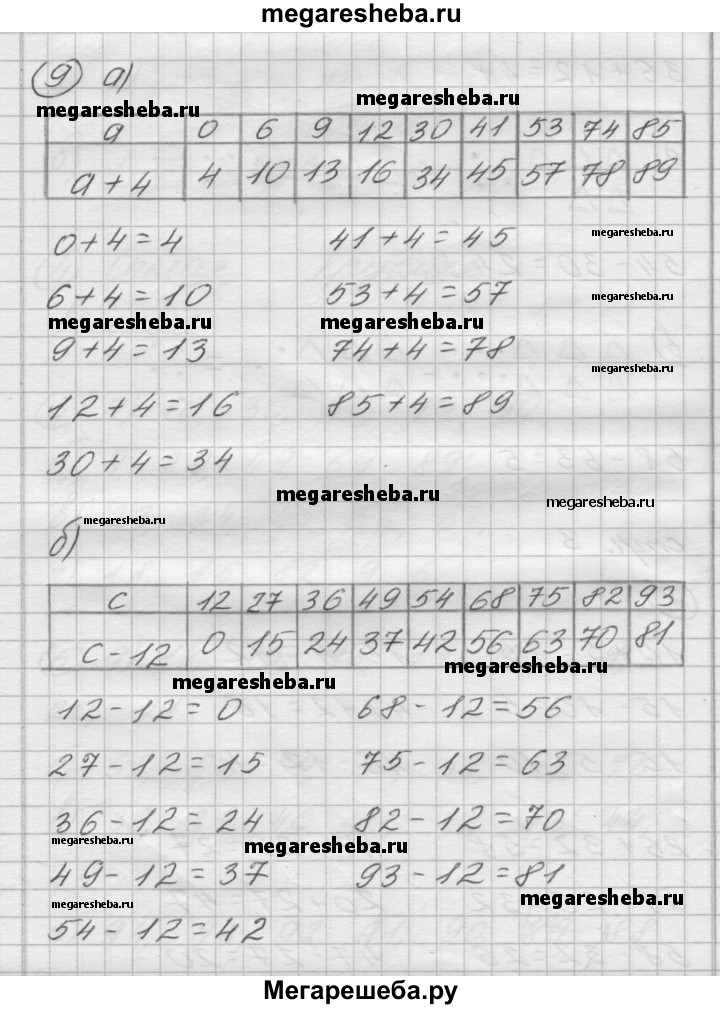 megaresheba.ru
9 а)
megaresheba.ru megaresheba.ru
а 0 6 9 12 30 41 53 74 85
а + 4 4 10 13 16 34 45 57 78 89
0 + 4 = 4 41 + 4 = 45 megaresheba.ru
6 + 4 = 10 53 + 4 = 57 megaresheba.ru
megaresheba.ru megaresheba.ru
9 + 4 = 13 74 + 4 = 78 megaresheba.ru
12 + 4 = 16 85 + 4 = 89
30 + 4 = 34
megaresheba.ru megaresheba.ru
megaresheba.ru
б)
с 12 27 36 49 54 68 75 82 93
с - 12 0 15 24 37 42 56 63 70 81
megaresheba.ru megaresheba.ru
12 - 12 = 0 68 - 12 = 56
27 - 12 = 15 75 - 12 = 63
36 - 12 = 24 82 - 12 = 70
megaresheba.ru megaresheba.ru
49 - 12 = 37 93 - 12 = 81
megaresheba.ru megaresheba.ru
54 - 12 = 42
Мегарешеба.ру